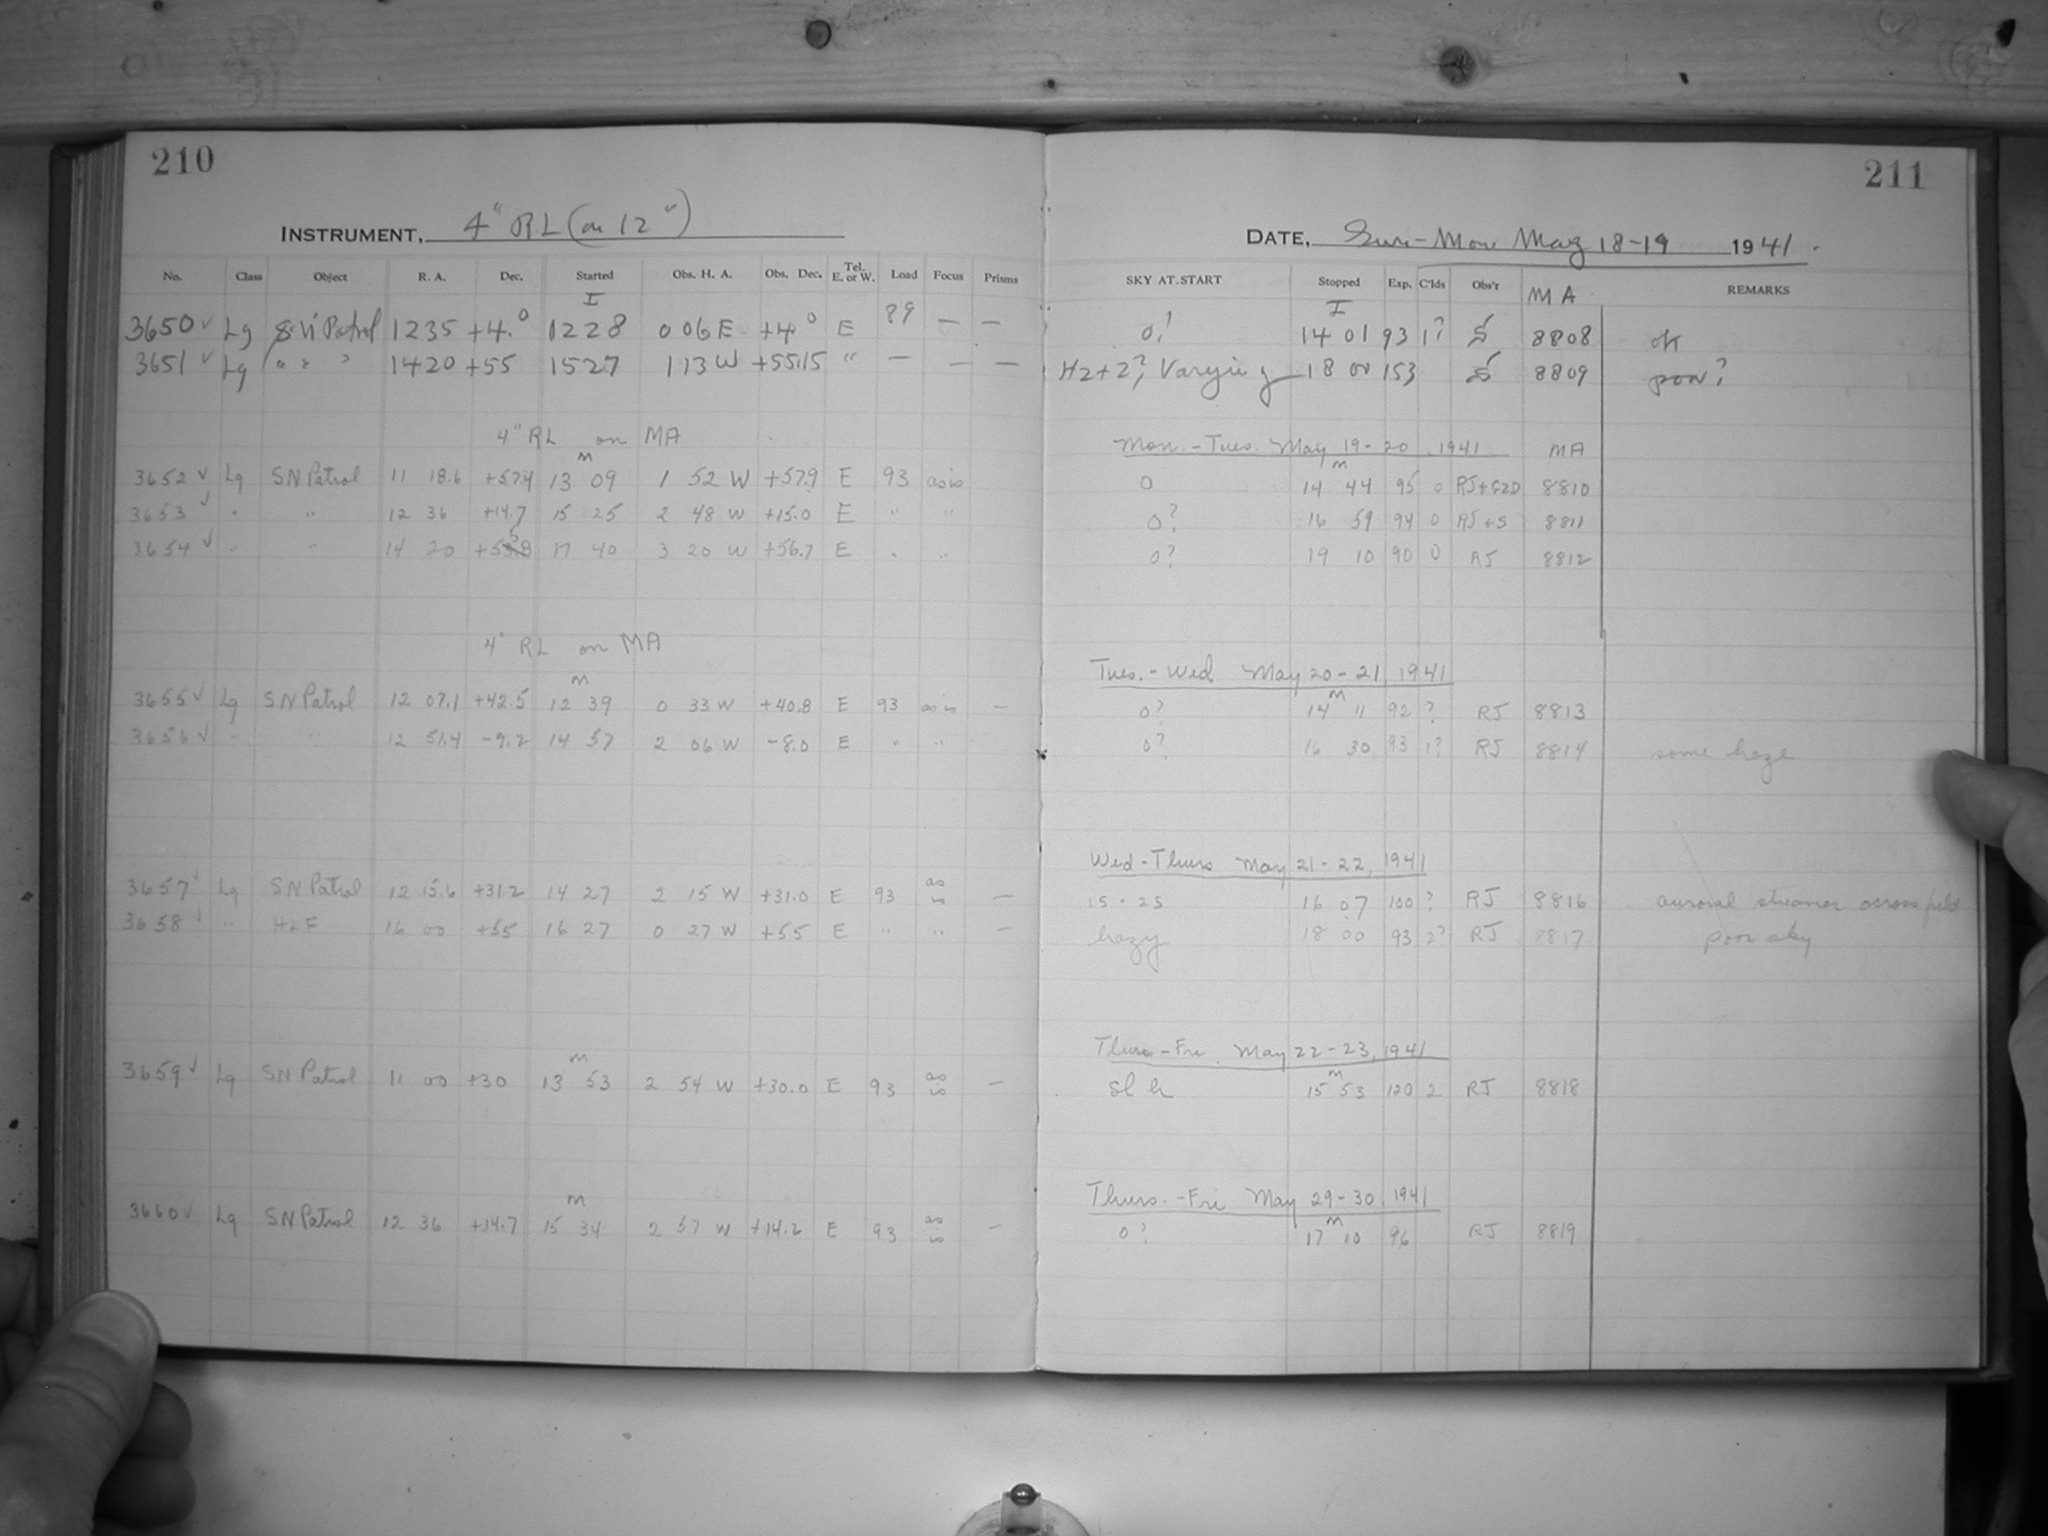 210
INSTRUMENT, 4" RL (on 12")
No. Class Object R. A. Dec. Started Obs. H. A. Obs. Dec. Tel. E. or W. Load Focus Prisms
I
3650 ✓ Lg Patrol 1235 +4.0 1228 0 06 E +4.0 E 89 — —
3651 ✓ Lg " " " 1420 +55 1527 1 13 W +55.15 " — — —
4" RL on MA
m
3652 ✓ Lg SN Patrol 11 18.6 +57.4 13 09 1 52 W +57.9 E 93 as is
3653 ✓ " " 12 36 +14.7 15 25 2 48 W +15.0 E " "
3654 ✓ " " 14 20 17 40 3 20 W +56.7 E " "
4" RL on MA
m
3655 ✓ Lg SN Patrol 12 07.1 +42.5 12 39 0 33 W +40.8 E 93 as is —
3656 ✓ " " 12 51.4 -9.2 14 57 2 06 W -8.0 E " "
3657 ✓ Lg SN Patrol 12 15.6 +31.2 14 27 2 15 W +31.0 E 93 as is —
3658 ✓ " HLE 16 00 +55 16 27 0 27 W +55 E " " —
m
3659 ✓ Lg SN Patrol 11 00 +30 13 53 2 54 W +30.0 E 93 as is —
m
3660 ✓ Lg SN Patrol 12 36 +14.7 15 34 2 57 W +14.2 E 93 as is —
211
DATE, Sun-Mon May 18-19 1941.
SKY AT START Stopped Exp. C'lds Obs'r MA REMARKS
I
0? 14 01 93 1? 8808 ok
H2+2? Varying 18 00 153 8809 poor?
Mon.-Tues. May 19-20, 1941 MA
m
0 14 44 95 0 RJ+GZD 8810
0? 16 59 94 0 RJ+S 8811
0? 19 10 90 0 RJ 8812
Tues.-Wed May 20-21, 1941
m
0? 14 11 92 ? RJ 8813
0? 16 30 93 1? RJ 8814 some haze
Wed-Thurs May 21-22, 1941
15-25 16 07 100 ? RJ 8816 auroral streamer across field
hazy 18 00 93 2? RJ 8817 poor sky
Thurs-Fri. May 22-23, 1941
m
sl h 15 53 120 2 RJ 8818
Thurs.-Fri May 29-30, 1941
m
0? 17 10 96 RJ 8819